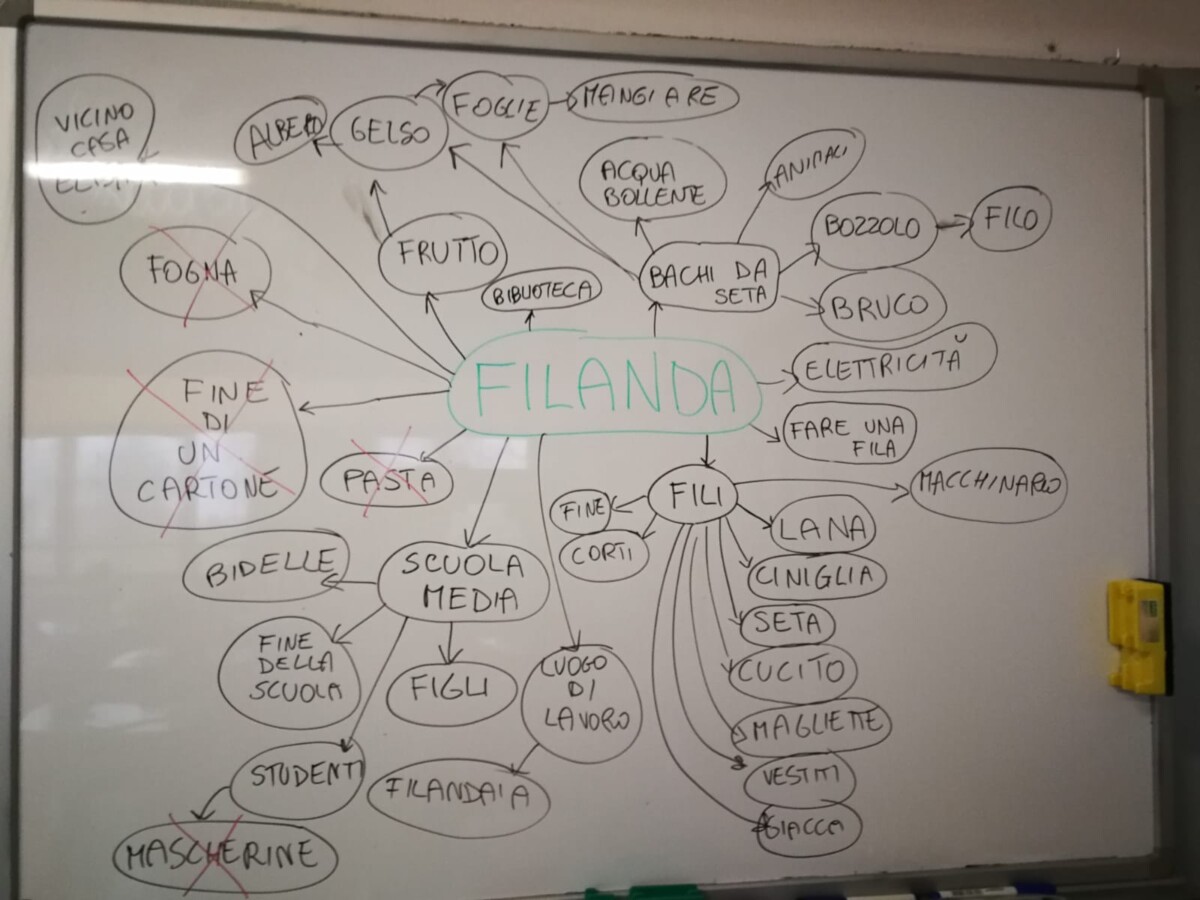 VICINO
CASA
ALBERO
GELSO
FOGLIE
MANGIARE
ACQUA
BOLLENTE
ANIMALI
BOZZOLO
FILO
FOGNA
FRUTTO
BIBLIOTECA
BACHI DA
SETA
BRUCO
FILANDA
ELETTRICITÀ
FINE
DI
UN
CARTONE
PASTA
FARE UNA
FILA
FILI
MACCHINARIO
FINE
CORTI
LANA
CINIGLIA
SETA
CUCITO
MAGLIETTE
VESTITI
GIACCA
BIDELLE
SCUOLA
MEDIA
FINE
DELLA
SCUOLA
FIGLI
LUOGO
DI
LAVORO
STUDENTI
FILANDAIA
MASCHERINE